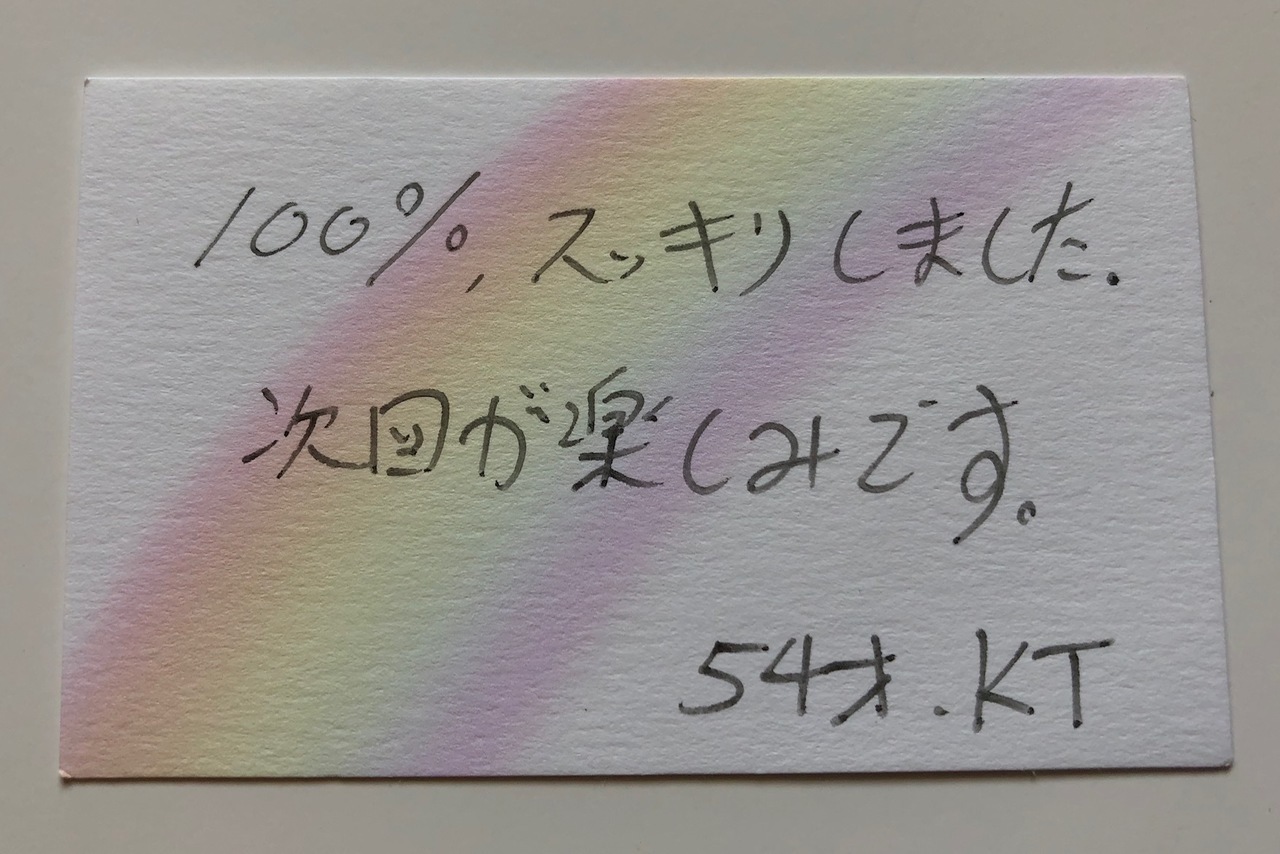 100%, スッキリしました.
次回が楽しみです。
54才.KT